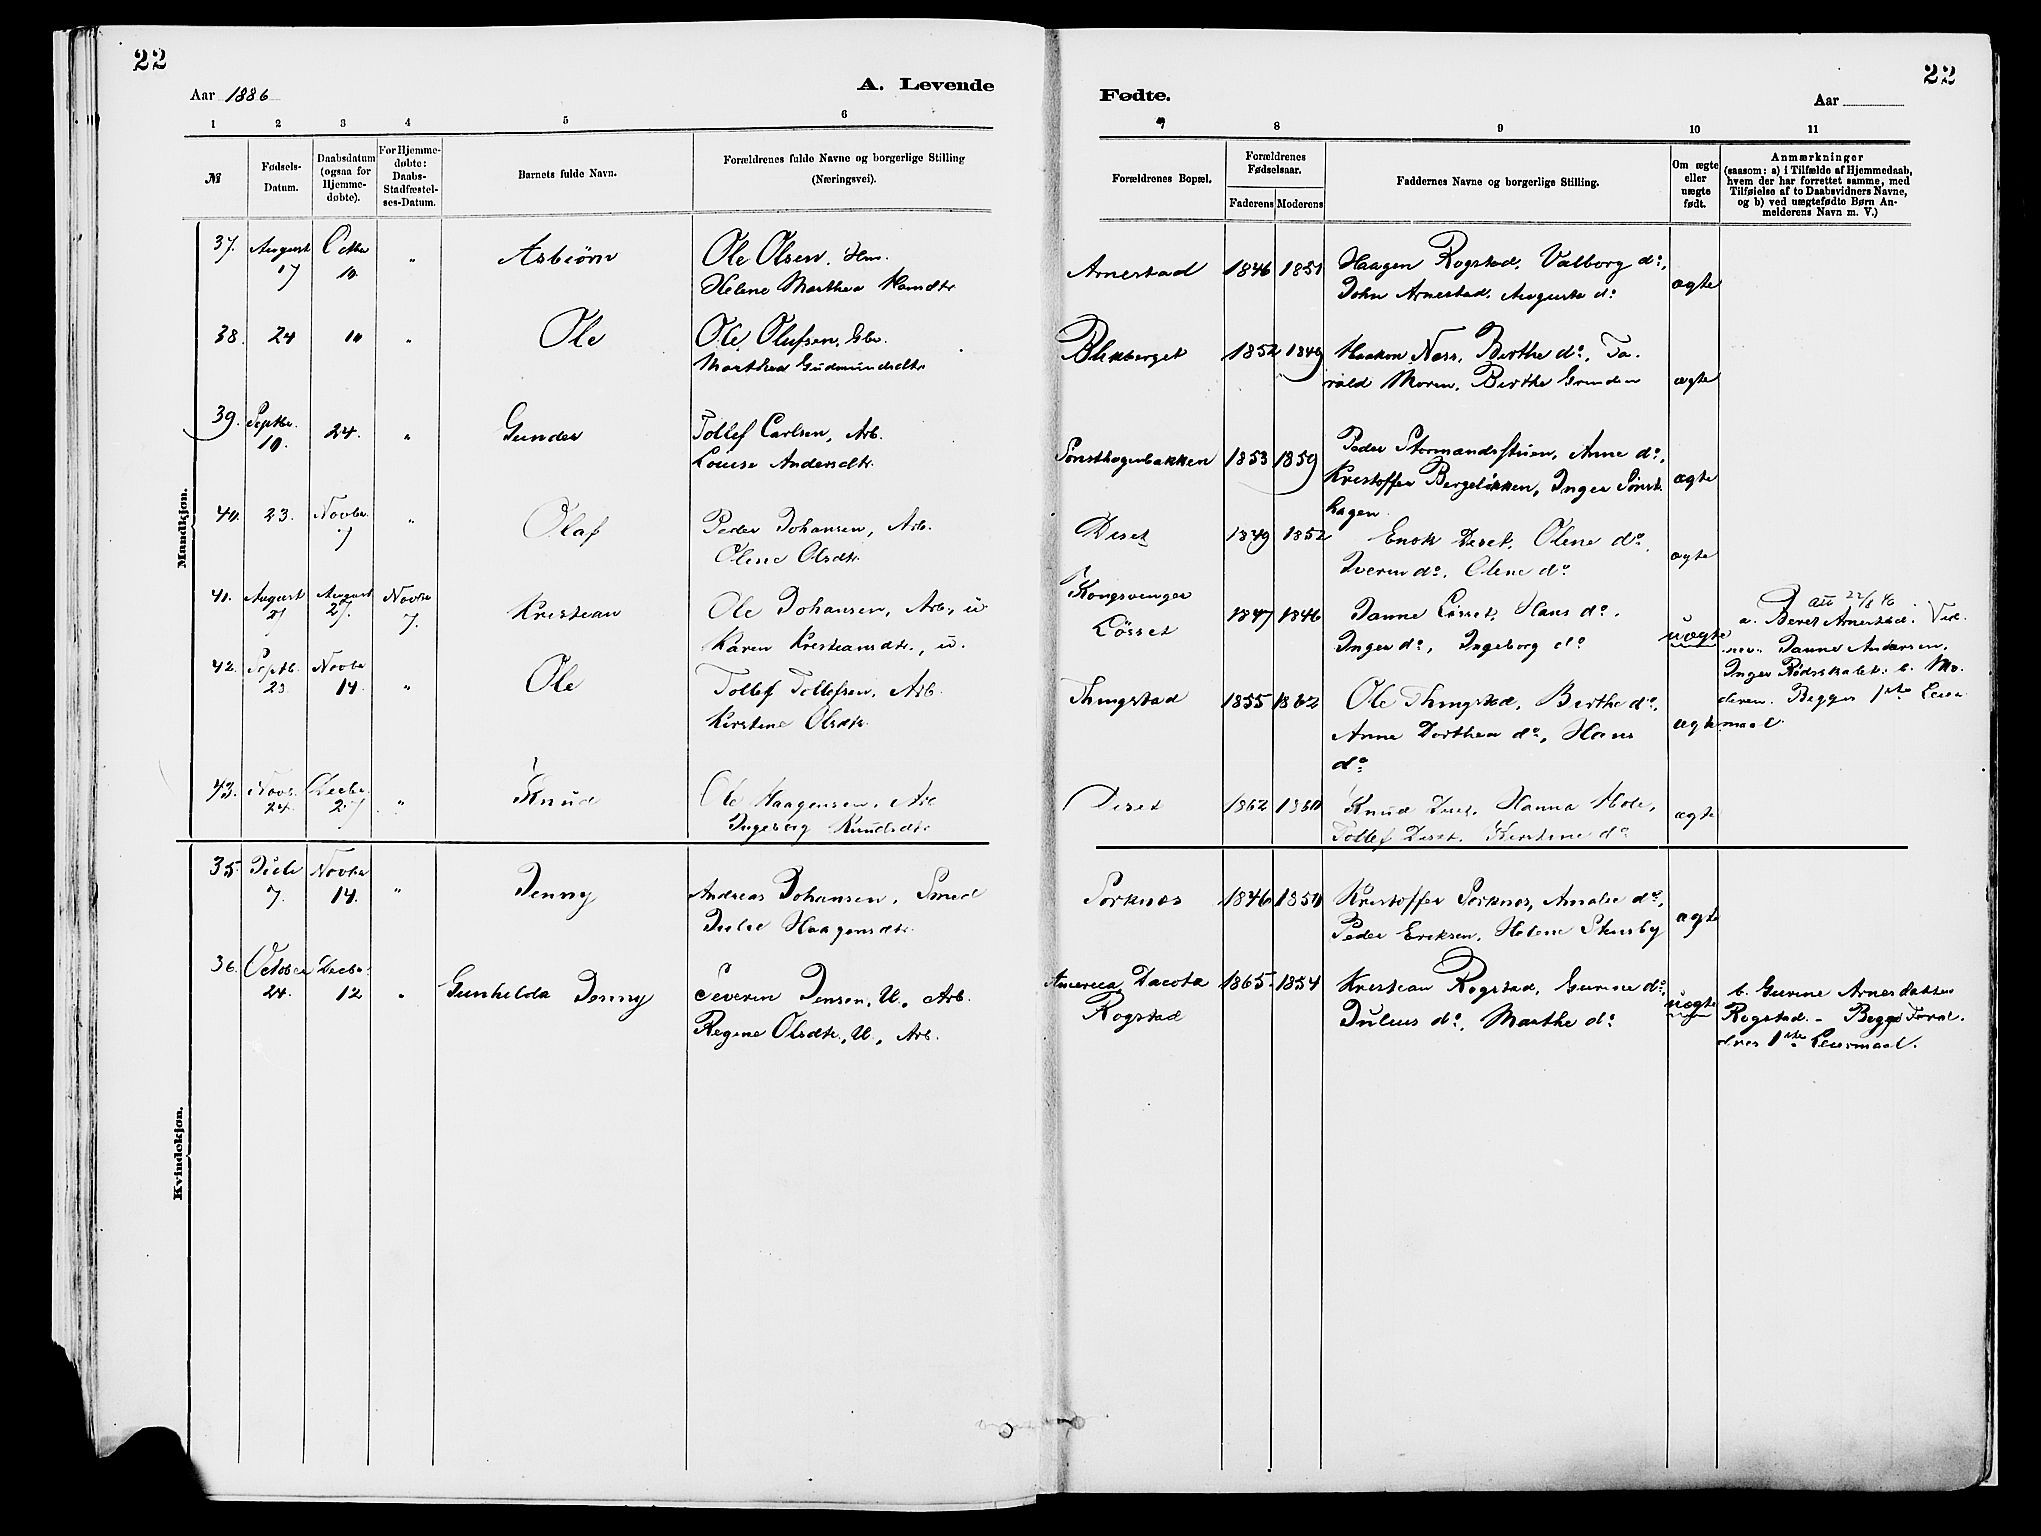 22
Aar 1886
A. Levende
1 2 3 4 5 6
№
Fødsels-
Datum.
Daabsdatum
(ogsaa for
Hjemme-
døbte).
For Hjemme-
døbte:
Daabs-
Stadfæstel-
ses-Datum.
Barnets fulde Navn.
Forældrenes fulde Navne og borgerlige Stilling
(Næringsvei).
Mandkjøn.
37. August Octbr " Asbiørn Ole Olsen. Hm.
17 10 Helene Marthea
38. 24 10 " Ole Ole Olufsen, Gbr.
Marthea Gudmundsdtr
39. Septbr. 24. " Gunder Tollef Carlsen, Arb.
10. Louise Andersdtr.
40. 23. Novbr. " Olaf Peder Johansen, Arb.
7 Olene Olsdtr.
41. August August Novbr Kristian Ole Johansen, Arb., u.
27. 7. Karen Kristiansdtr., u.
42. Septb. Novbr " Ole Tollef Tollefsen, Arb.
23 14. Kirstine Olsdtr.
43. Novb. Decbr. " Knud Ole Haagensen, Arb
24. 27 Ingeborg Knudsdtr.
Kvindekjøn.
35. Novbr " Jenny Andreas Johansen, Smed
7. 14. Julie Haagensdtr.
36. October Decbr. " Gunhilda Jenny Severin Jensen, U., Arb.
24. 12 Regine Olsdtr., U., Arb.
22
Fødte.
Aar
7 8 9 10 11
Forældrenes Bopæl.
Forældrenes
Fødselsaar.
Faderens Moderens
Faddernes Navne og borgerlige Stilling.
Om ægte
eller
uægte
født.
Anmærkninger
(saasom: a) i Tilfælde af Hjemmedaab,
hvem der har forrettet samme, med
Tilføielse af to Daabsvidners Navne,
og b) ved uægtefødte Børn An-
melderens Navn m. V.)
Arnestad 1846 1851 Haagen Rogstad, Valborg do,
John Arnestad, Augusta do ægte
Blikberget 1852 1849 Haakon Næss, Berthe do, Ta-
rald Moren, Berthe Grinden ægte
Sønsthagenbakken 1853 1859 Peder Stormandsstuen, Anne do,
Kristoffer Bergeløkken, Inger Sønst- ægte
hagen.
Diset 1849 1852 Enok Diset, Olene do,
Iveren do, Olene do ægte
Kongsvinger
Løsset 1847 1846 Janne Løsset, Hans do,
Inger do, Ingeborg do uægte
a. Beret Arnestad. Vid-
ner. Janne Andersen,
Inger b. Mo-
deren. Begges 1ste Leier-
maal.
Thingstad 1855 1862 Ole Thingstad, Berthe do,
Anne Dorthea do, Hans ægte
do
Diset 1862 Knud Diset, Hanna Hole,
Tollef Diset, Kirstine do ægte
Sorknes 1846 1850 Kristoffer Sorknes, Amalie do,
Peder Eriksen, Helene ægte
America, Dacota 1865 1854 Kristian Rogstad, Gurine do,
Rogstad Julius do, Marthe do uægte
b. Gurine Arnesdatter
Rogstad. - Begge Foræl-
dres 1ste Leiermaal.